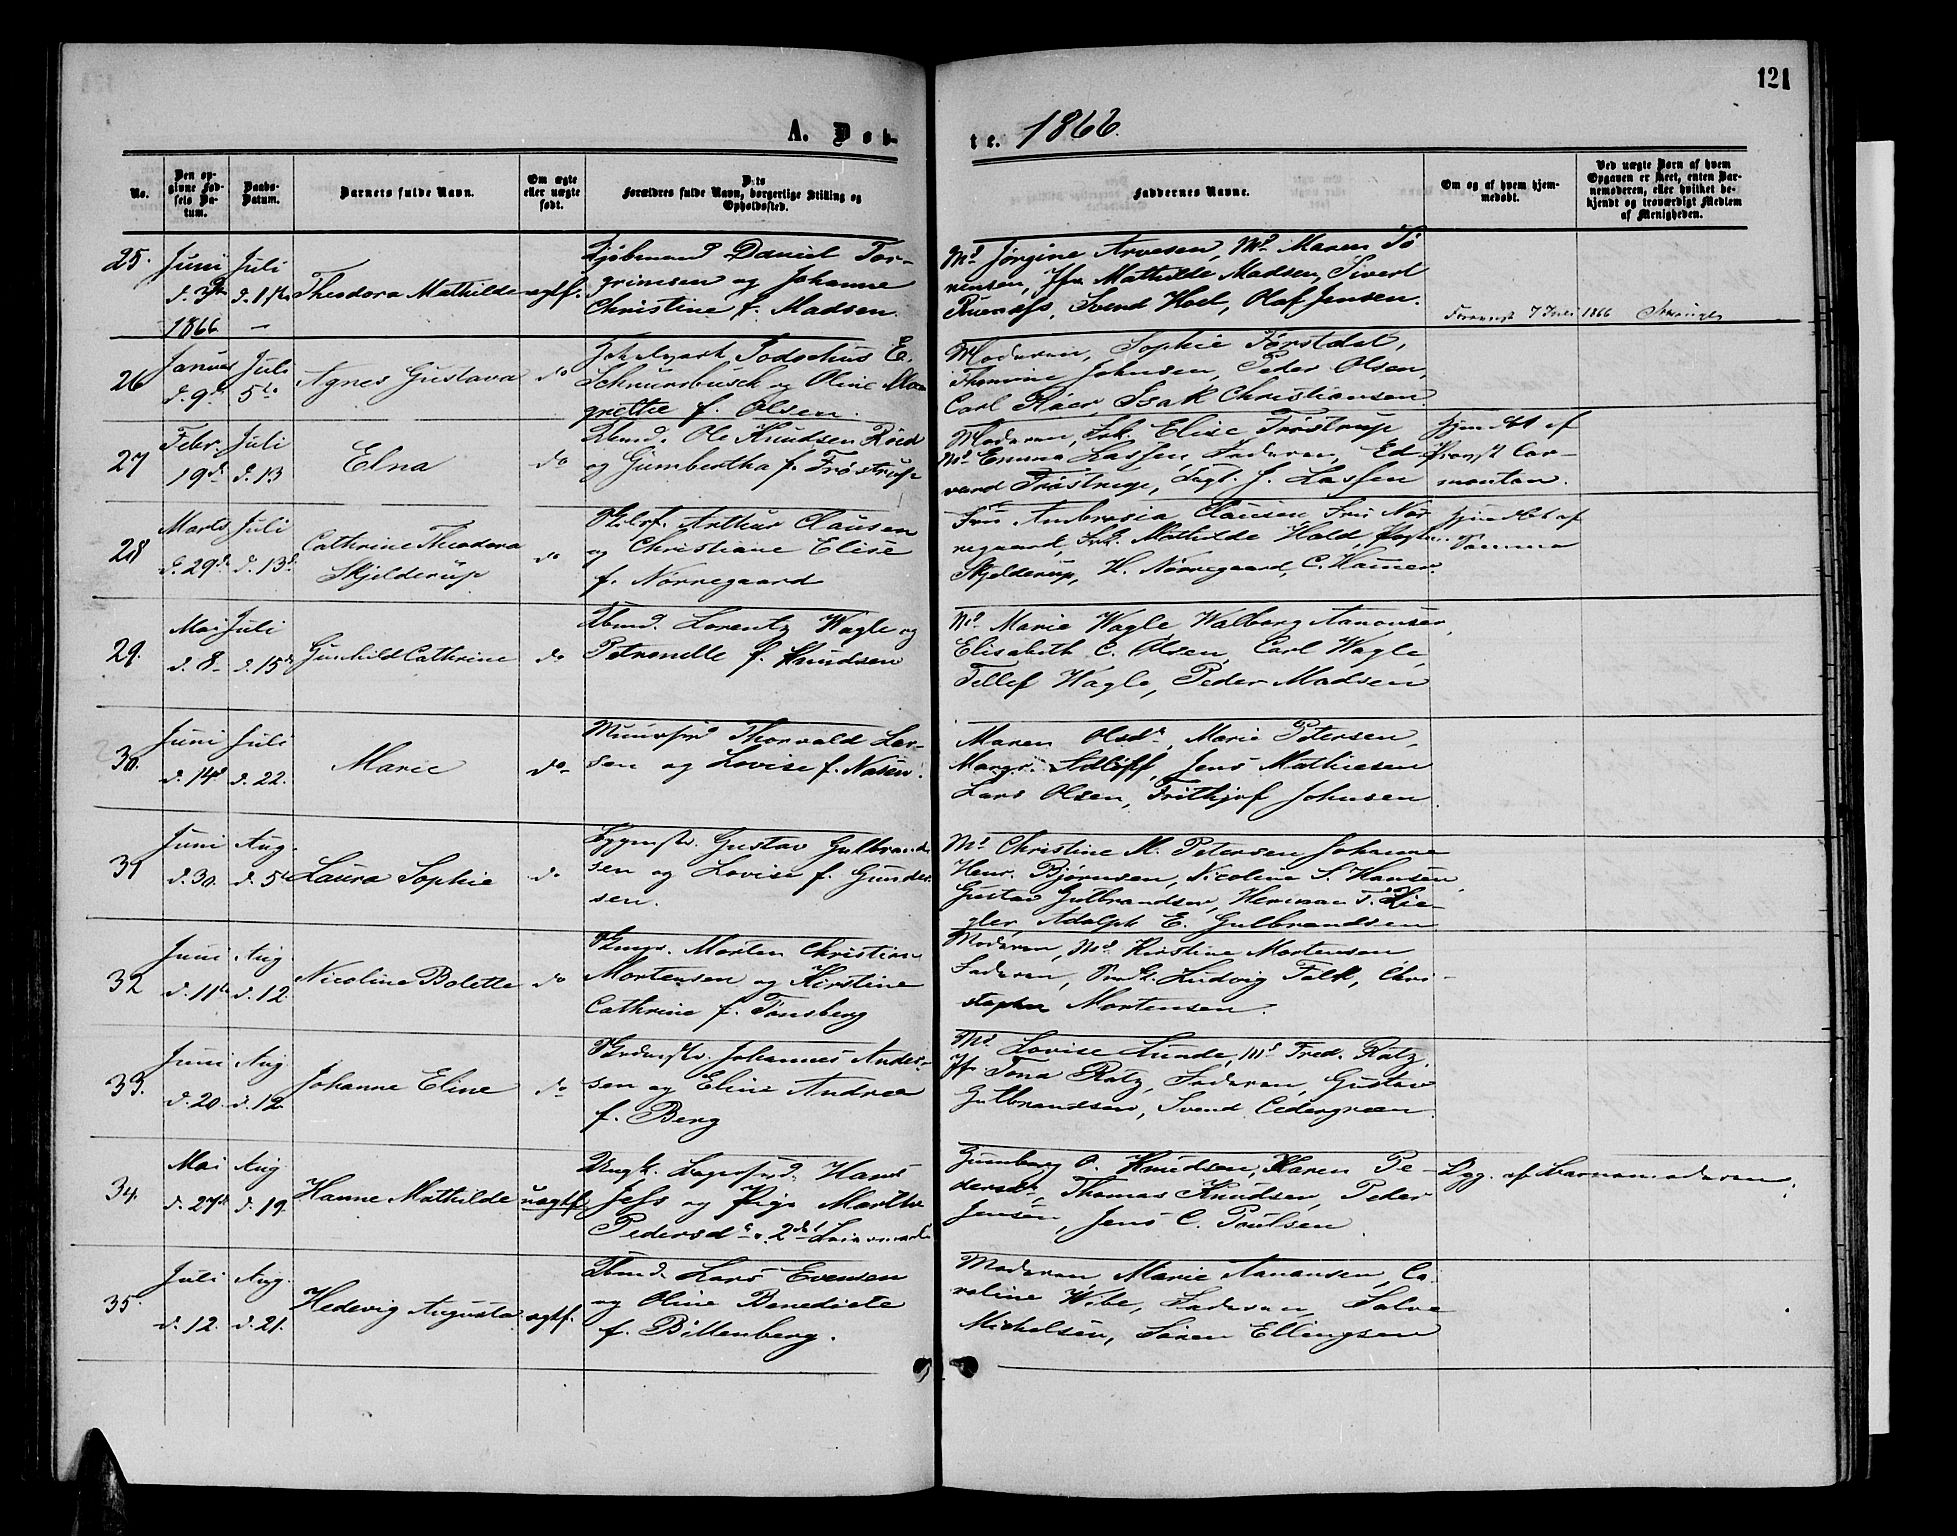 121
A. Døb-
te. 1866.
No.
Den op-
givne Fød-
sels Da-
tum.
Daabs-
Datum.
Barnets fulde Navn.
Om ægte
eller uægte
født.
Dets
Forældres fulde Navn, borgerlige Stilling og
Opholdssted.
Faddernes Navne.
Om og af hvem hjem-
medøbt.
Ved uægte Børn af hvem
Opgaven er skeet, enten Bar-
nemoderen, eller hvilket be-
kjendt og troværdigt Medlem
af Menigheden.
25.
Juni
d. 3
1866
Juli
d. 1
Theodora Mathilde
ægtf.
Kjøbmand Daniel Tor-
grimsen og Johanne
Christine f. Madsen.
Md Jørgine Arvesen, Md Maren Tø
nnesen, Jfr. Mathilde Madsen, Sivert
Svend Hoel, Olaf Jensen.
7 Juli 1866
26
Januar
d. 9
Juli
5te
Agnes Gustava
do
E.
Schnursbusch og Oline Mar
grethe f. Olsen.
Moderen, Sophie
Thomine Johnsen, Peder Olsen,
Carl Röer, Isak Christiansen
27
Febr.
19d
Juli
d. 13
Elna
do
Skmd. Ole Knudsen Röed
og Gumbertha f. Trøstrup
Moderen, Frk. Elise Trøstrup
Md Emma Lassen, Faderen, Ed-
vard Trøstrup, J. Lassen
hjemdøbt af
Provst Cor-
montan.
28
Marts
d. 29d
Juli
d. 13d
Cathrine Theodora
Skjelderup
do
Arthur Clausen
og Christiane Elise
f. Nørregaard
Fru Ambrosia Clausen Fru Nør
regaard, Frk. Mathilde Hold, Pastor
Skjelderup, H. Nørregaard, C. Hamer.
hjemdøbt af
Samme
29.
Mai
d. 8
Juli
d. 15d
Gunhild Cathrine
do
Skmd. Lorentz Wagle og
Petronelle f. Knudsen
Md Marie Wagle Walborg Aanonsen,
Elisabeth C. Olsen, Carl Wagle,
Tellef Wagle, Peder Madsen
30.
Juni
d. 14d
Juli
d. 22.
Marie
do
Thorvald Lar-
sen og Lovise f. Nasen.
Maren Olsdr, Marie Petersen,
Margr. Adlöff, Jens Mathiesen
Lars Olsen, Frithjof Johnsen.
31
Juni
d. 30.
Aug.
d. 5
Laura Sophie
do
Bygmstr. Gustav Gulbrand
sen og Lovise f. Gunder
sen.
Md Christine M. Petersen Johanne
Henr. Bjørnsen, Nicoline S. Hansen,
Gustav Gulbrandsen, Herman T. Zie-
gler, Adolph E. Gulbrandsen
32
Juni
d. 11te
Aug
d. 12
Nicoline Bolette
do
Morten Christian
Mortensen og Kirstine
Cathrine f. Tønsberg
Moderen, Md Kirstine Mortensen
Faderen, Ludvig Falk, Chri-
stopher Mortensen.
33.
Juni
d. 20.
Aug
d. 12.
Johanne Eline
do
Johannes Ander-
sen og Eline Andrea
f. Berg
Md Lovise Lunde, Md Fred. Ratz,
Jfr Tona Ratz, Faderen, Gustav
Gulbrandsen, Svend Cedergreen.
34.
Mai
d. 27d
Aug
d. 19.
Hanne Mathilde
uægtf
Ungk. Hans
Jess og Pige Marthe
Pedersdr. 2det Leiermaal
Gumborg O. Knudsen, Karen Pe-
dersdr, Thomas Knudsen, Peder
Jensen, Jens C. Poulsen.
Opg. af Barnemoderen.
35.
Juli
d. 12.
Aug.
d. 21.
Hedevig Augusta
ægtf.
Skmd. Lars Evensen
og Oline Benedicte
f. Biltenberg.
Moderen, Marie Aanonsen, Ca-
roline Wibe, Faderen, Salve
Michelsen, Søren Ellingsen